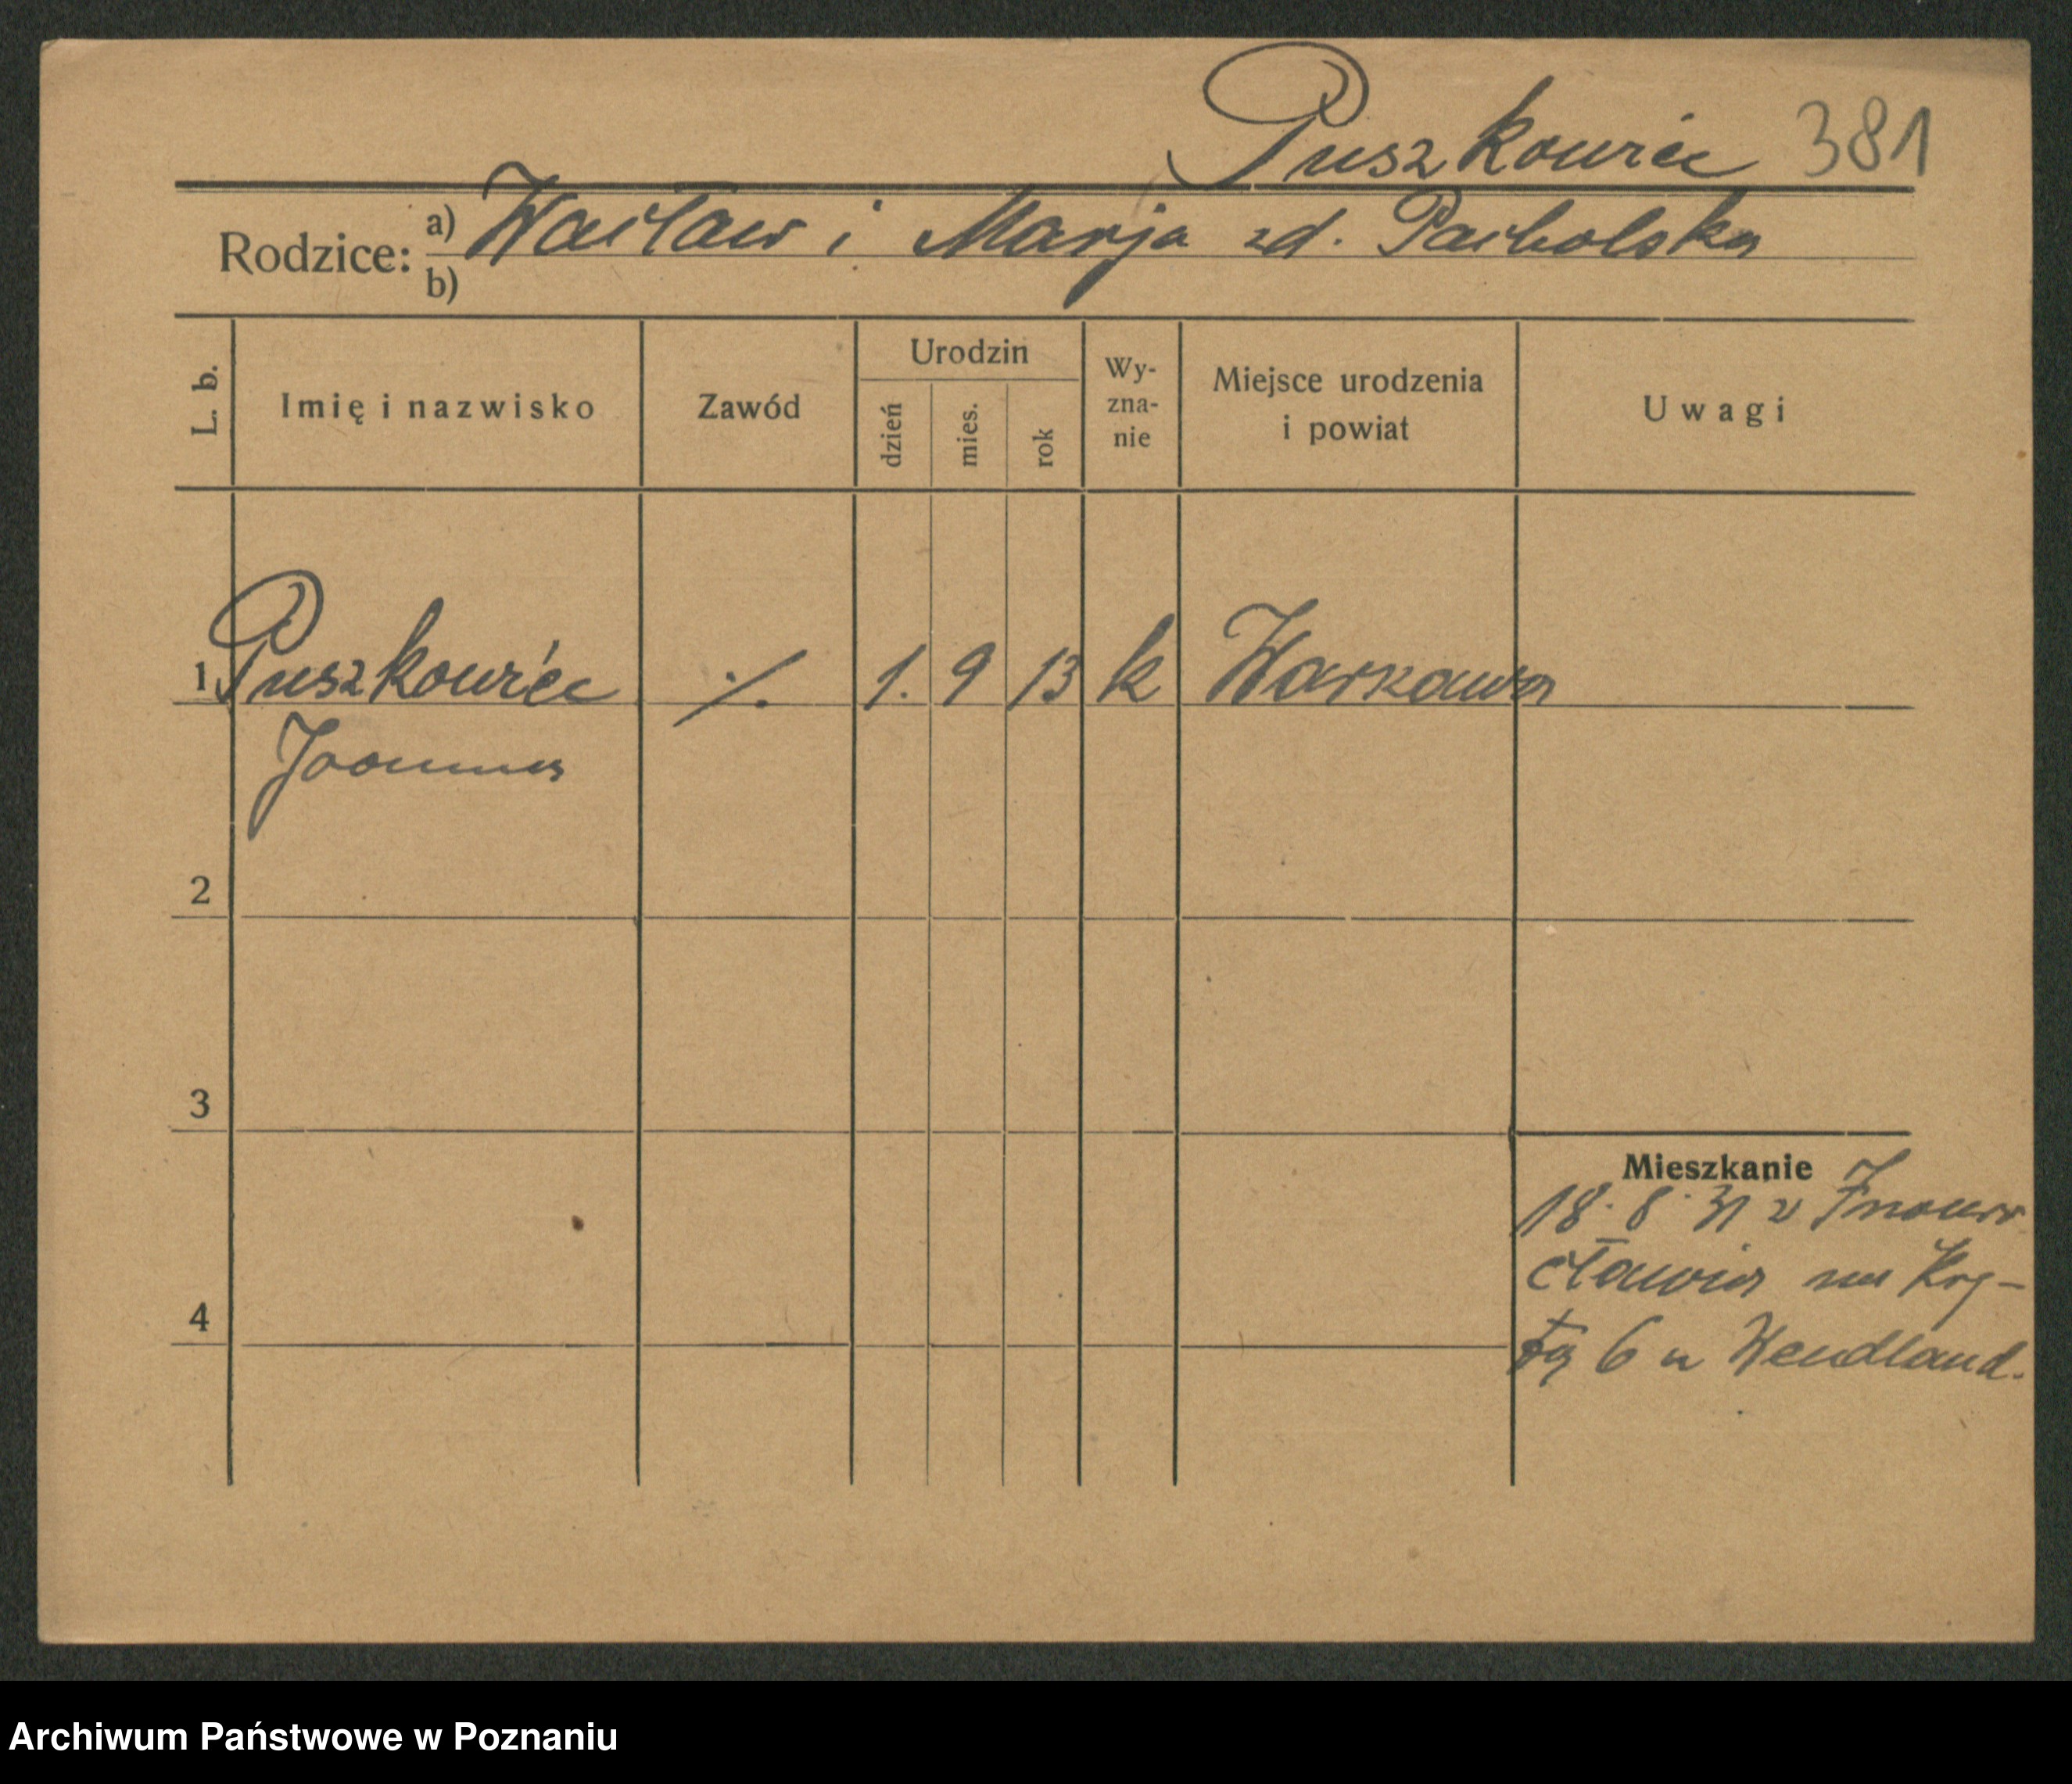 Puszkowiec 381
Rodzice: a) Wacław i Marja zd. Pacholska
b)
L. b. Imię i nazwisko Zawód Urodzin dzień mies. rok Wy-zna-nie Miejsce urodzenia i powiat Uwagi
1 Puszkowiec ./. 1. 9 13 k Warszawa
Joanna
2
3
Mieszkanie
18. 8. 31 z Inowro
cławia na
4
6 u Wendland.
Archiwum Państwowe w Poznaniu